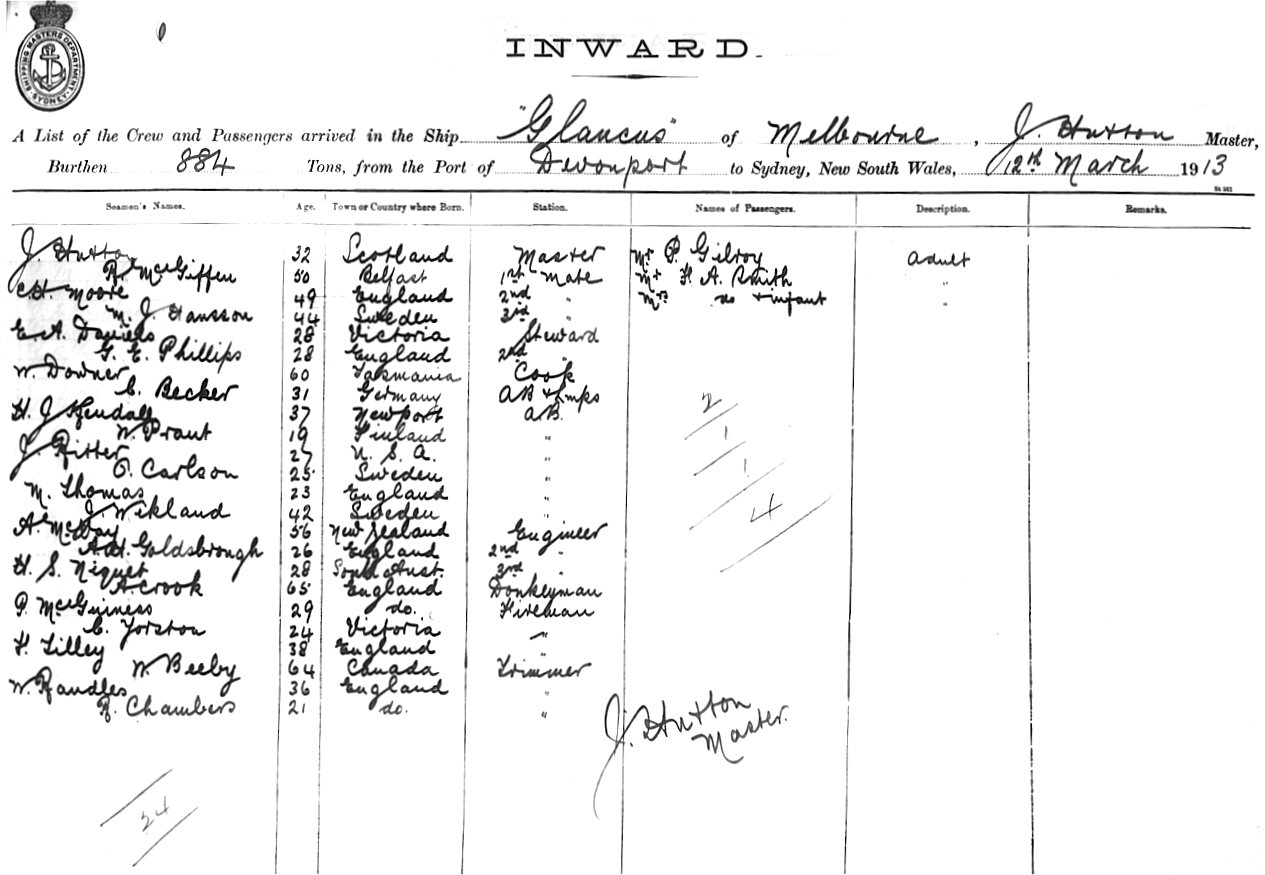 SHIPPING MASTERS DEPARTMENT SYDNEY
INWARD.
A List of the Crew and Passengers arrived in the Ship "Glaucus" of Melbourne, J. Hutton Master,
Burthen 884 Tons, from the Port of Devonport to Sydney, New South Wales, 12th March 1913
Seamen's Names. Age. Town or Country where Born. Station. Names of Passengers. Description. Remarks.
J Hutton 32 Scotland Master Mr P. Gilroy Adult
R. McGiffen 50 Belfast 1st Mate Mr H. A. Smith "
C.H. Moore 49 England 2nd " Mrs do + infant "
M. J. Hansson 44 Sweden 3rd "
E. A. Daniels 28 Victoria Steward
G. E. Phillips 28 England 2nd "
W. Downer 60 Tasmania Cook
C. Becker 31 Germany AB & Lmps
H. J Kendall 37 Newport A.B.
W. Prant 19 Finland "
J Ritter 27 U. S. A. "
O. Carlson 25 Sweden "
M. Thomas 23 England "
J Wikland 42 Sweden "
A. McWay 56 New Zealand Engineer
A.H. Goldsbrough 26 England 2nd "
H. S. Niquet 28 South Aust. 3rd "
A. Crook 65 England Donkeyman
P. McGuiness 29 do. Fireman
C. Yorston 24 Victoria "
H. Lilley 38 England "
W. Beeby 64 Canada Trimmer
W. Randles 36 England "
R. Chambers 21 do. "
2
1
1
4
J. Hutton
Master.
24